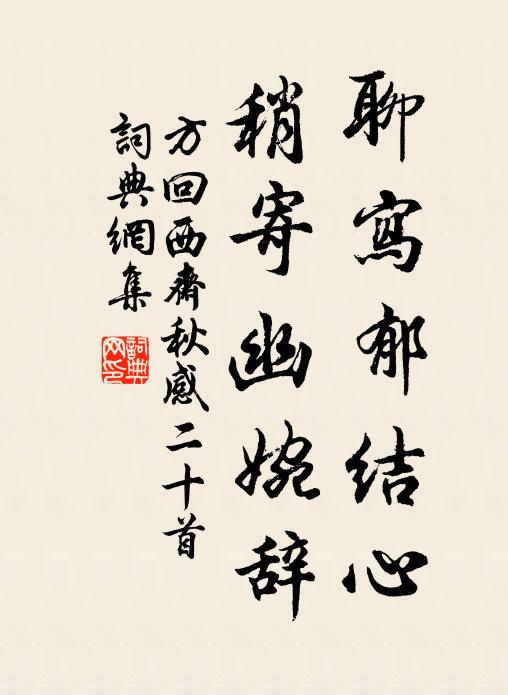 聊寫郁结心
稍寄幽婉辞
方回西齋秋感二十首
詞典網集
詞典
网印